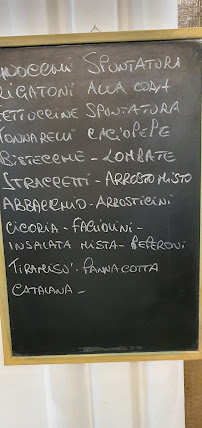 GNOCCHI SPUNTATURA
RIGATONI ALLA CODA
FETTUCCINE SPUNTATURA
TONNARELLI CACIO PEPE
BISTECCHE - LOMBATE
STRACCETTI - ARROSTO MISTO
ABBACCHIO - ARROSTICINI
CICORIA - FAGIOLINI -
INSALATA MISTA - PEPERONI
TIRAMISU' - PANNACOTTA
CATALANA -